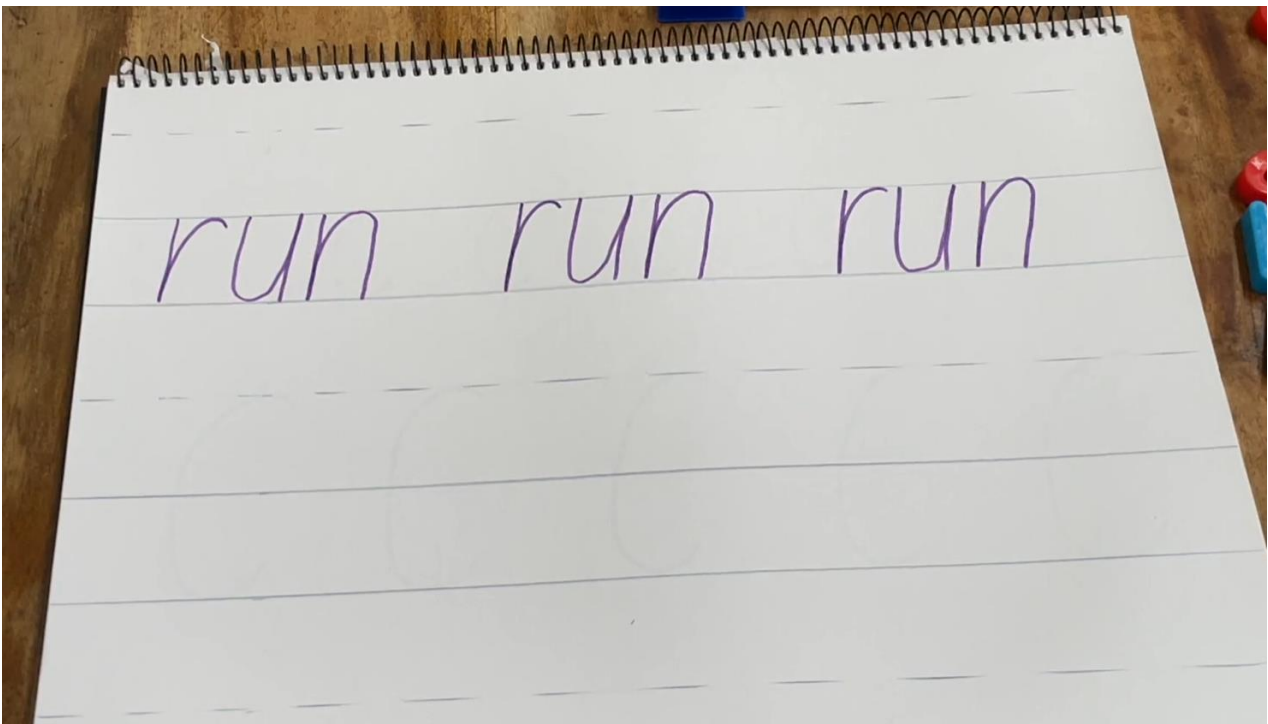 run run run